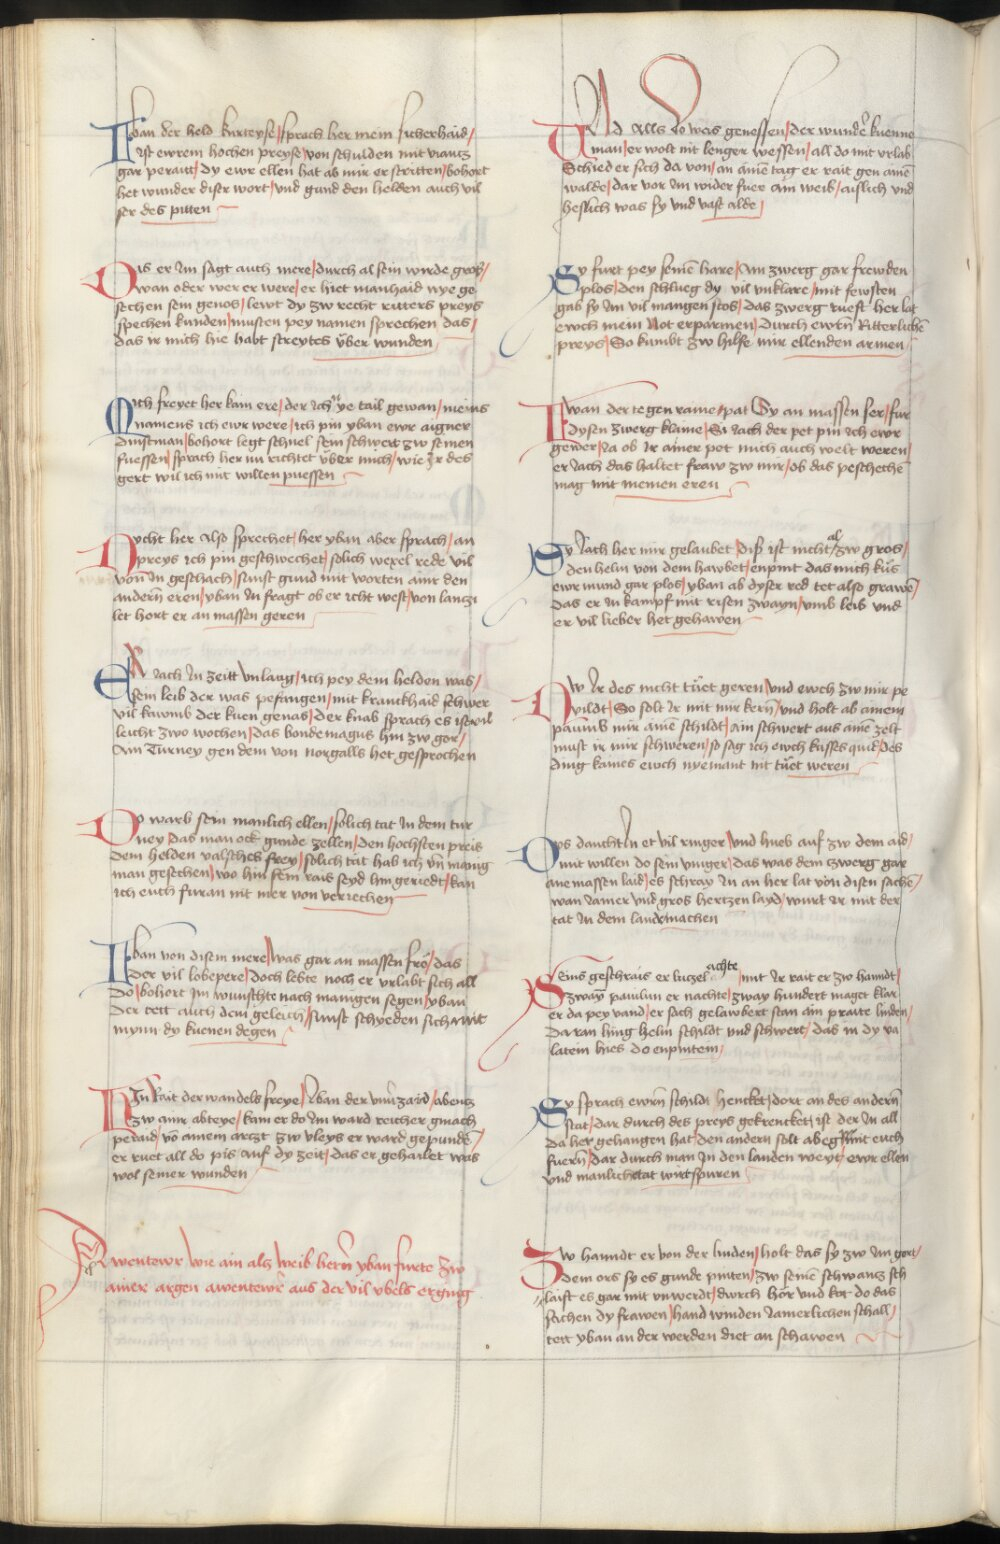 Iban der held kurteyse / sprach her mein sicherhaid /
ist ewrem hochen preyse / von schulden mit viantz
gar perait / dy ewr ellen hat ab mir erstritten / bohort
het wunder diser wort / vnd gund den helden auch vil
ser des pitten
Das er Im sagt auch mere / durch al sein wirde gros /
wan oder wer er were / er hiet manhaid nye ge
sechen sein genos / lewt dy zw recht ritters preys
spechen kunden / musten pey namen sprechen das /
das ir mich hie habt streytes vber wunden
Mich freyet her kain ere / der ich ye tail gewan / meins
namens ich ewr were / ich pin yban ewr aigner
dinstman / bohort legt schnel sein schwert zw seinen
fuessen / sprach her nu richtet vber mich / wie Ir des
gert wil ich mit willen puessen
Nycht her also sprechet / her yban aber sprach / an
preys ich pin geschwechet / solich wexel rede vil
von In geschach / sunst gund mit worten ainr den
andern eren / yban In fragt ob er icht west / von lanczi
let hort er an massen geren
Er Iach In zeitt vnlang / ich pey dem helden was /
sein leib der was pefangen / mit kranckhaid schwer
vil kawmb der kuen genas / der knab sprach es ist vil
leicht zwo wochen / das bondemagus hin zw gor /
Ain Turney gen dem von norgalls het gesprochen
Do warb sein manlich ellen / solich tat In dem tur
ney / das man ock gunde zellen / den hochsten preis
dem helden valsches frey / solich tat hab ich vn manig
man gesechen / wo hin sein rais seyd hin geriedt / kan
ich euch furan nit mer von veriechen
Iban von disem mere / was gar an massen fro / das
der vil lobepere / doch lebte noch er vrlabt sich all
do / bohort Im wunschte nach manigen segen / yban
der tett auch dem geleich / sunst schyeden sich mit
mynn dy kuenen degen
Hin Rait der wandels freye / yban der vnuerzaid / abentz
zw ainr abteye / kam er do Im ward reicher gmach
peraid / vo ainem arczt zw vleys er ward gepunde /
er ruet all do pis auf dy zeit / das er gehailet was
wol seiner wunden
Awentewr wie ain alz weib hern yban furte zw
ainer argen awentewr aus der vil vbels erging
Und alls do was genessen / der wunde kuenne
man / er wolt nit lenger wessen / all do mit vrlab
Schied er sich da von / an aine tag er rait gen aine
walde / dar vor Im wider fuer ain weib / aislich vnd
heslich was sy vnd vast alde /
Sy furt pey seine hare / Ain zwerg gar frewden
plos / den schlueg dy vil vnklare / mit fewsten
gab sy Im vil mangen stos / das zwerg rueft her lat
ewch mein Not erparmen / durch ewrn Ritterliche
preys / So kumbt zw hilfe mir ellenden armen /
Iwan der tegen raine / pat Sy an massen ser / fur
dysen zwerg klaine / Si Iach der pet pin ich ewr
gewer / Ia ob Ir ainer pet mich auch welt weren /
er Iach das haltet fraw zw mir / ob das peschech
mag mit meinen eren
Sy Iach her mir gelaubet / diß ist nicht al zw gros /
den helm von dem hawbet / enpint das mich kus
ewr mund gar plos / yban ab dyser red tet also grawe /
das er In kampf mit risen zwayn / vmb leib vnd
er vil lieber het gehawen
Nw Ir des nicht tuet geren / vnd ewch zw mir pe
vildt / So solt Ir mit mir kern / vnd holt ab ainem
paumb mir aine schildt / Ain schwert aus aine zelt
must ir mir schweren / so sag ich ewch kusses quid / des
ding kaines ewch nyemant nit tuet weren
Des daucht In et vil ringer / vnd hueb auf zw dem aid /
mit willen do sein vinger / das was dem zwerg gare
ane massen laid / es schray In an her lat von disen sache /
wan Iamer vnd gros hertzen layd / wurt Ir mit der
tat In dem land machen
Seins geschrais er luczel achte / mit Ir rait er zw hanndt /
zway paulun er nachte / zway hundert maget klar
er da pey vand / er sach gelawbert stan ain praite linden /
daran hing helm schildt vnd schwert / das in dy va
latein hies do enpinten /
Sy sprach ewrn schildt hencket / dort an des andern
stat / dar durch des preys gekrencket / ist der In all
da her gehangen hat / den andern solt ab egmit euch
fuern / dar durch man In den landen weyt / ewr ellen
vnd manlich tat wirt spuren
Zw hanndt er von der linden / holt das sy zw Im gert /
dem ors sy es gunde pinten / zw seine schwantz sch
laift es gar mit vnwerdt / durch hor vnd kot do das
sachen dy frawen / hand winden Iamerlichen schall /
tett yban an der werden diet an schawen